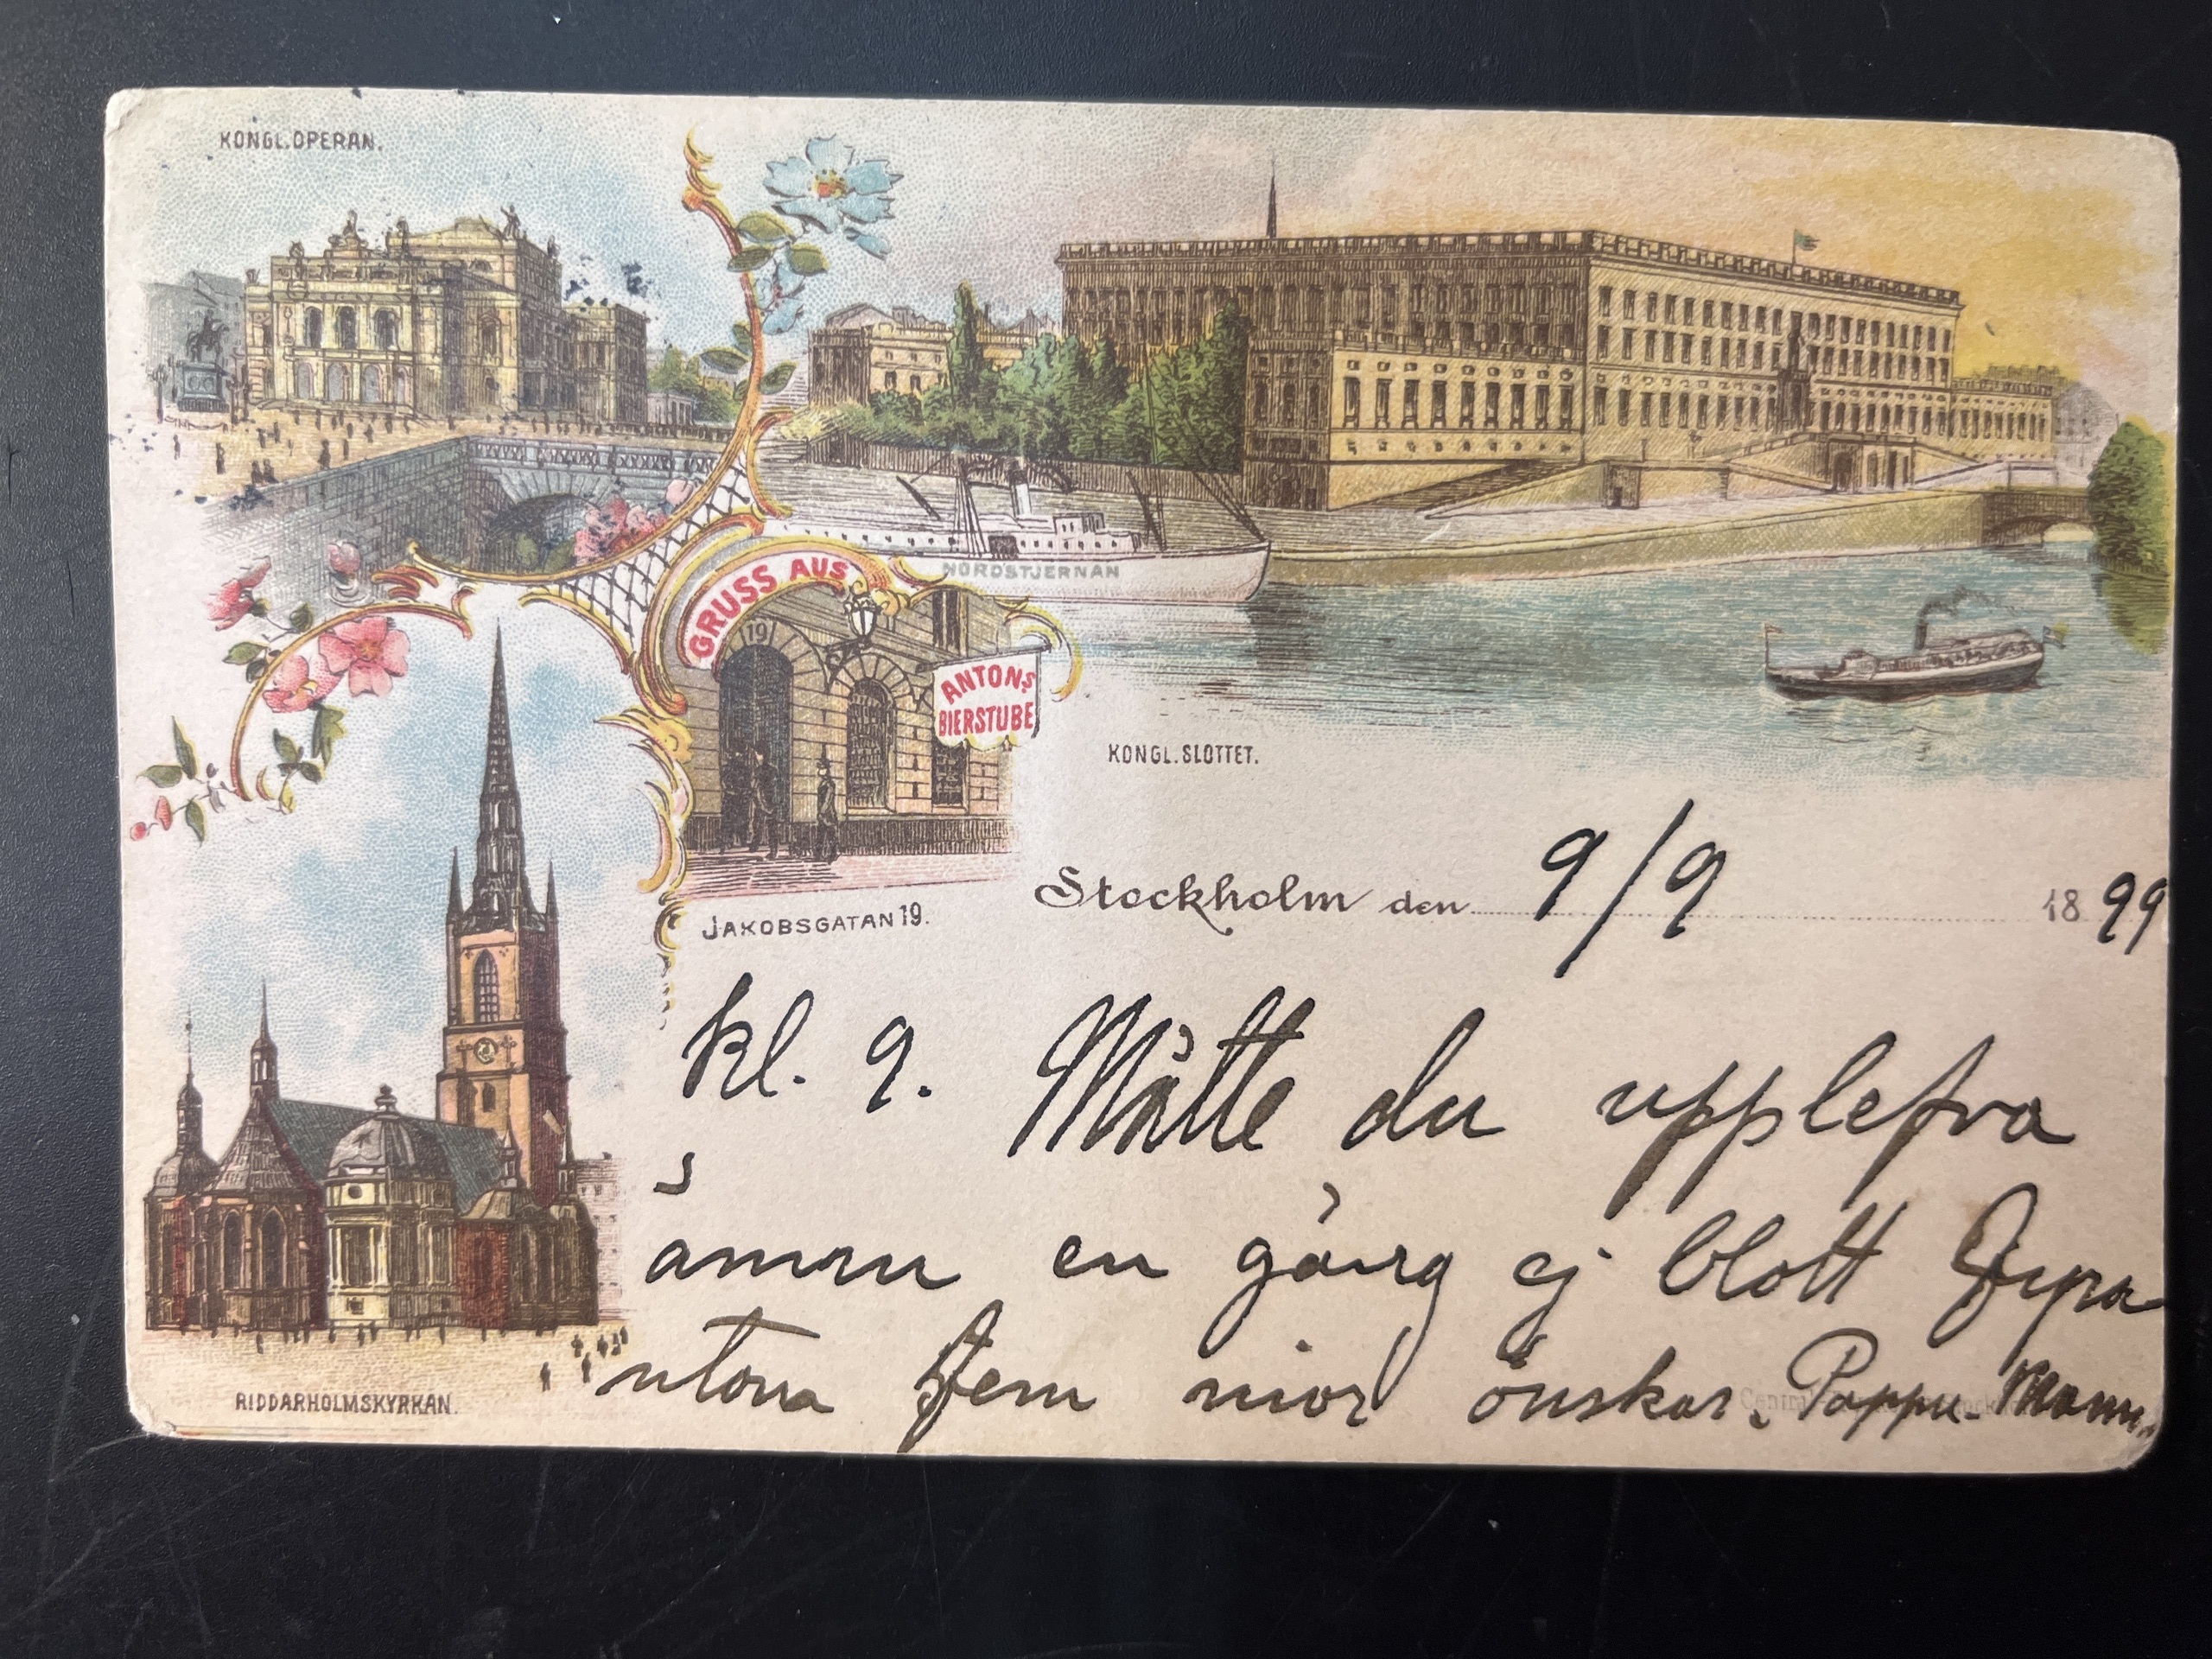 KONGL. OPERAN.
NORDSTJERNAN
GRUSS AUS
19
ANTONS
BIERSTUBE
KONGL. SLOTTET.
JAKOBSGATAN 19.
Stockholm den 9/9 1899
kl. 9. Måtte du upplefva
ännu en gång ej blott Fyra
utan Fem nior önskar. Pappa. Mamma
RIDDARHOLMSKYRKAN.